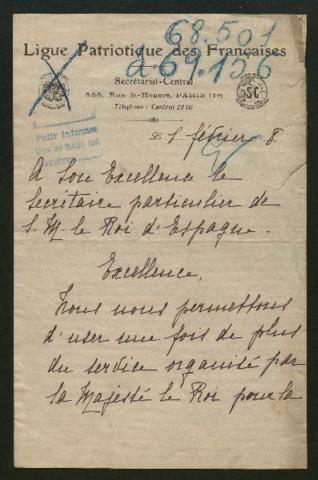 68.501
a 69.156
Ligue Patriotique des Françaises
Secrétariat-Central
368, Rue St-Honoré, PARIS (1er)
Téléphone : Central
SC
Pedir informes
février 8
A Son Excellence le
Secrétaire particulier de
S. M. le Roi d'Espagne.
Excellence,
Nous nous permettons
d'user une fois de plus
du service organisé par
Sa Majesté le Roi pour la